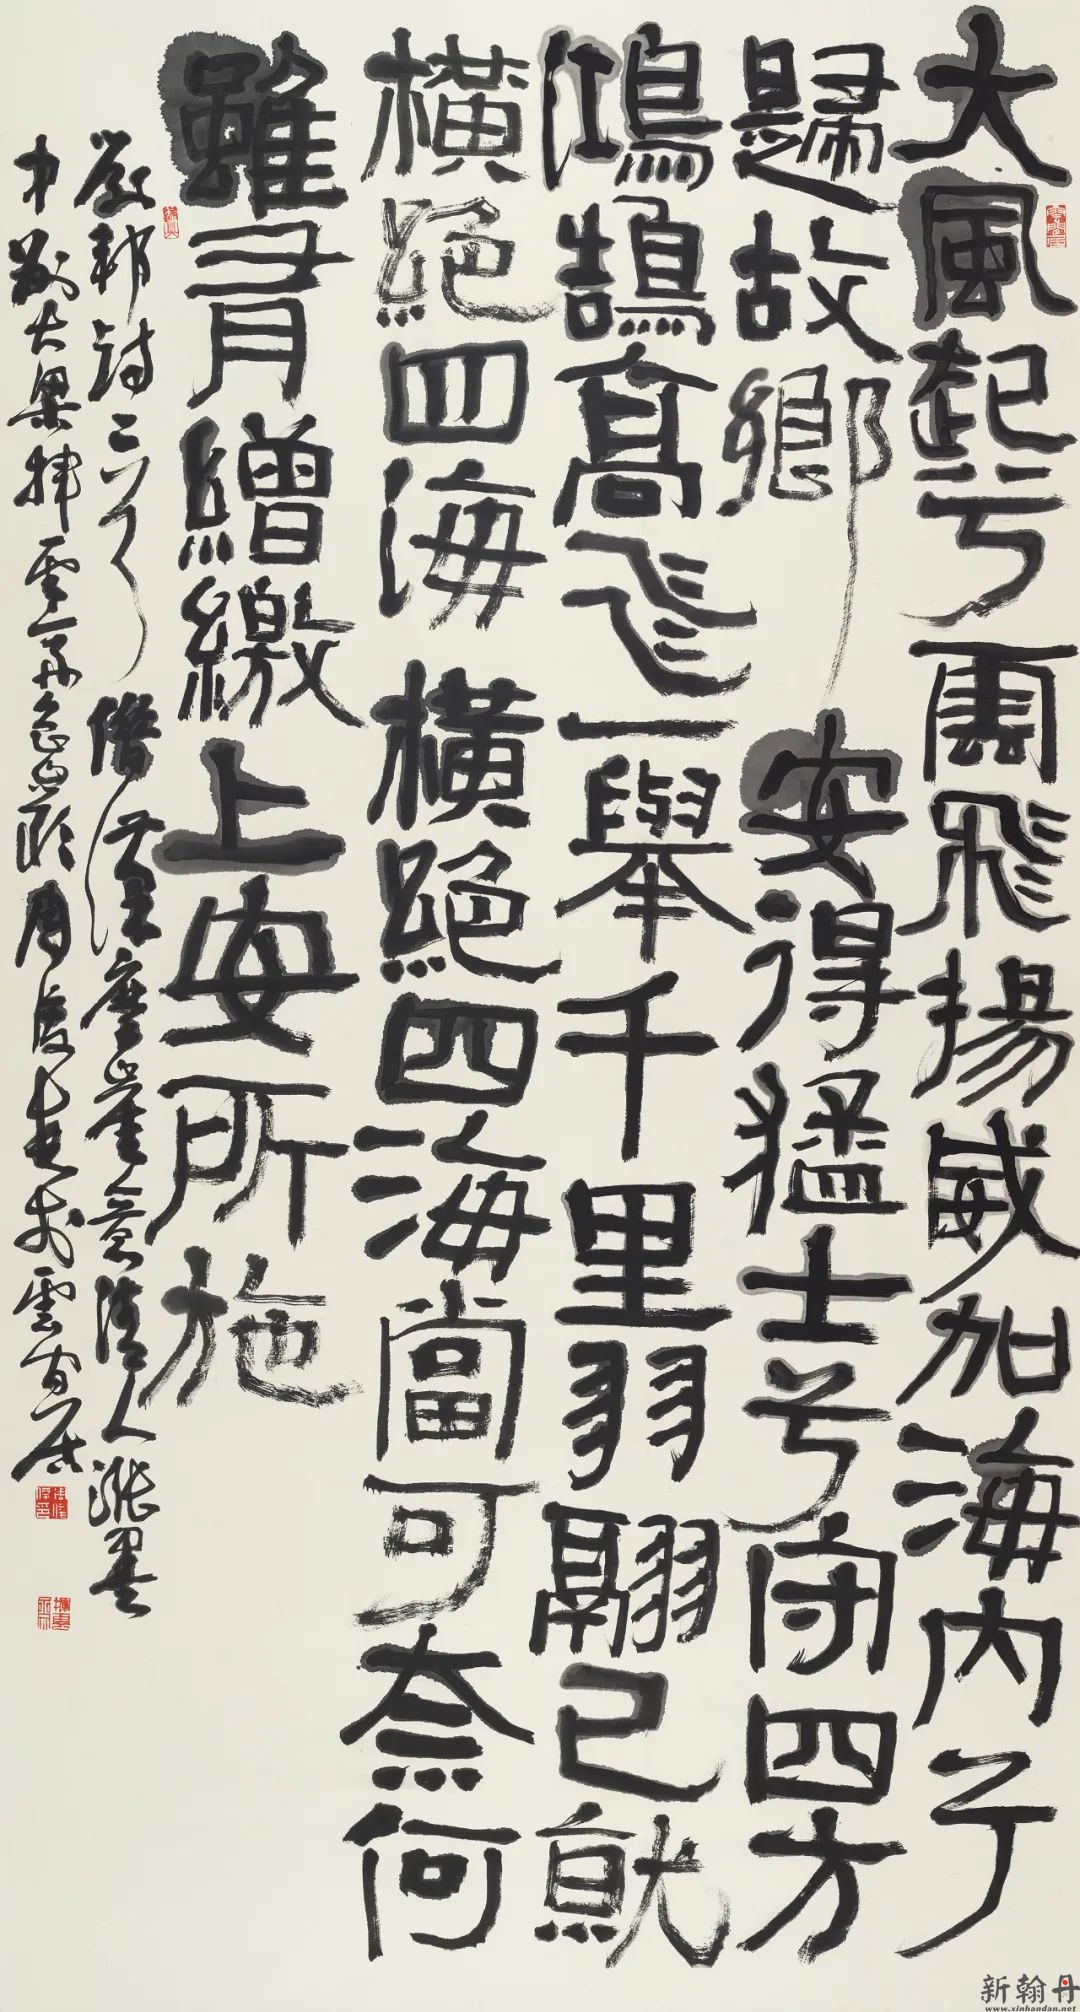 大風起兮雲飛揚威加海內兮
歸故鄉安得猛士兮守四方
鴻鵠高飛一舉千里羽翮已就
橫絕四海橫絕四海當可奈何
雖有繒繳上安所施
邦詩二首借漢摩崖意清人漲墨
雲間居
新翰丹
www.xinhandan.net